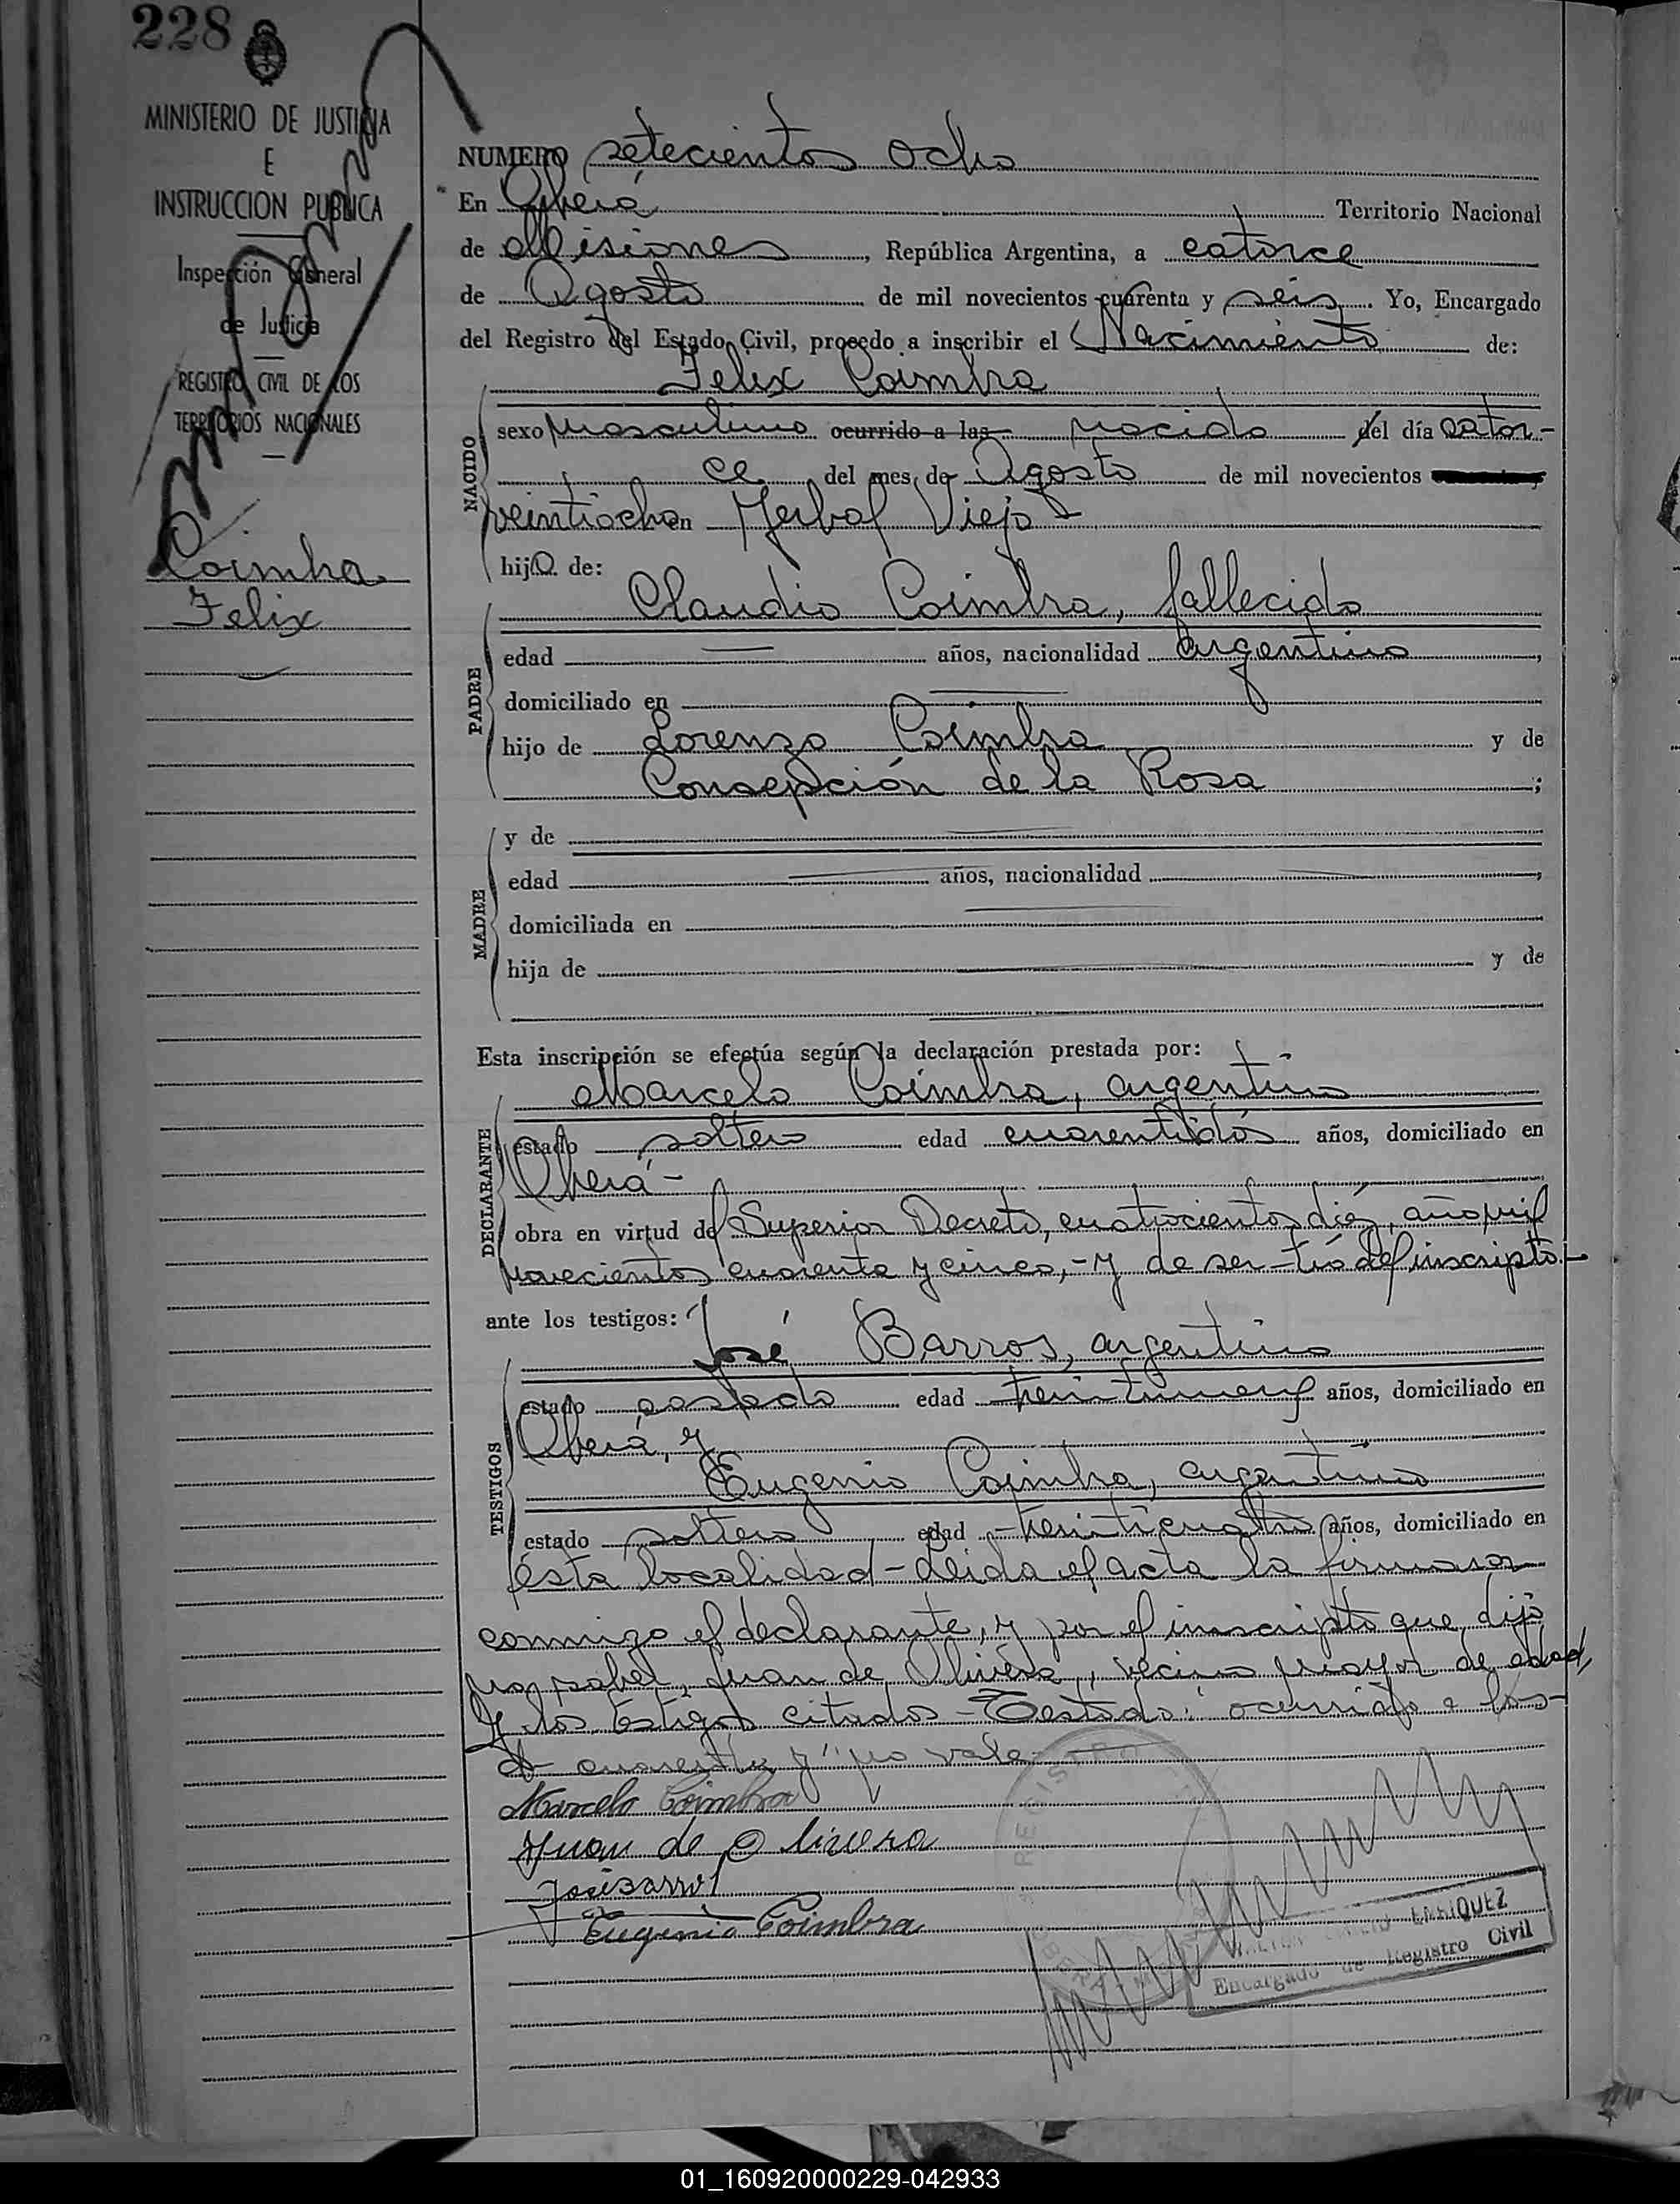 228
MINISTERIO DE JUSTICIA
E
INSTRUCCION PUBLICA
Inspección General
de Justicia
REGISTRO CIVIL DE LOS
TERRITORIOS NACIONALES
Coimbra
Felix
NUMERO setecientos ocho
En Oberá Territorio Nacional
de Misiones, República Argentina, a catorce
de Agosto de mil novecientos cuarenta y seis. Yo, Encargado
del Registro del Estado Civil, procedo a inscribir el Nacimiento de:
Felix Coimbra
NACIDO
sexo masculino ocurrido a las nacido del día cator-
ce del mes de Agosto de mil novecientos
veintiocho en Yerbal Viejo
hijo de:
PADRE
Claudio Coimbra, fallecido
edad — años, nacionalidad argentino,
domiciliado en —
hijo de Lorenzo Coimbra y de
Consepción de la Rosa;
MADRE
y de —
edad — años, nacionalidad —,
domiciliada en —
hija de — y de
Esta inscripción se efectúa según la declaración prestada por:
DECLARANTE
Marcelo Coimbra, argentino
estado soltero edad cuarentidós años, domiciliado en
Oberá-
obra en virtud del Superior Decreto, cuatrocientos diéz, año mil
novecientos cuarenta y cinco,- y de ser-tio del inscripto.-
ante los testigos:
TESTIGOS
José Barros, argentino
estado casado edad treintinueve años, domiciliado en
Oberá, y
Eugenio Coimbra, argentino
estado soltero edad treinticuatro años, domiciliado en
ésta localidad-Leida el acta la firmaron
conmigo el declarante, y por el inscripto que dijo
no saber, Juan de Olivera, vecino mayor de edad,
y los testigos citados-Testado: ocurrido a las-
cuarenta y" no vale
Marcelo Coimbra
Juan de Olivera
José Barros
Eugenio Coimbra
REGISTRO
OBERA
ENRIQUEZ
Encargado de Registro Civil
01_160920000229-042933